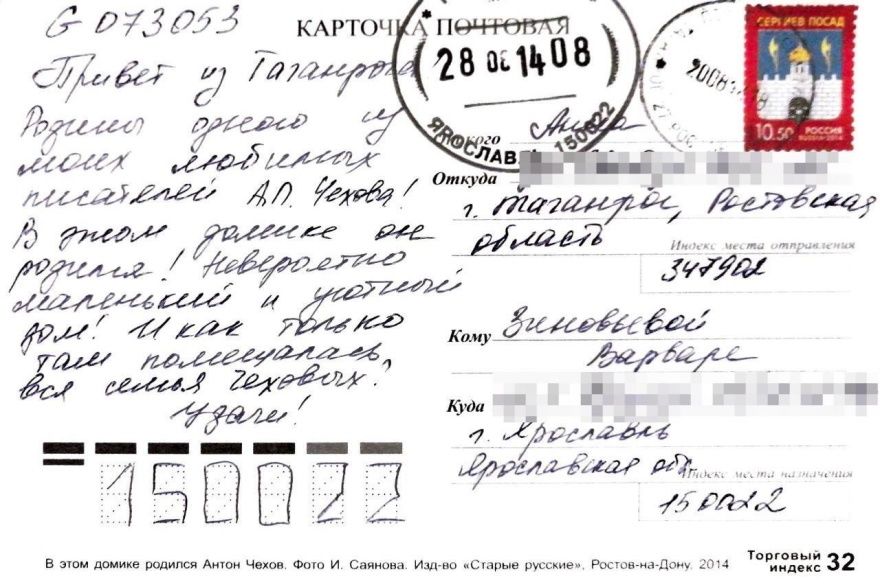 G 073053
КАРТОЧКА ПОЧТОВАЯ
Привет из Таганрога
Родины одного из
моих любимых
писателей А.П. Чехова!
В этом домике он
родился! Невероятно
маленький и уютный
дом! И как только
там помещалась
вся семья Чеховых?
Удачи!
150022
28 08 14 08
ЯРОСЛАВЛЬ 150022
СЕРГИЕВ ПОСАД
10.50 РОССИЯ
RUSSIA•2014
От кого Анна
Откуда
г. Таганрог, Ростовская
область
Индекс места отправления
347902
Кому Зиновьевой
Варваре
Куда
г. Ярославль
Ярославская обл.
Индекс места назначения
150022
В этом домике родился Антон Чехов. Фото И. Саянова. Изд-во «Старые русские», Ростов-на-Дону, 2014
Торговый
индекс 32